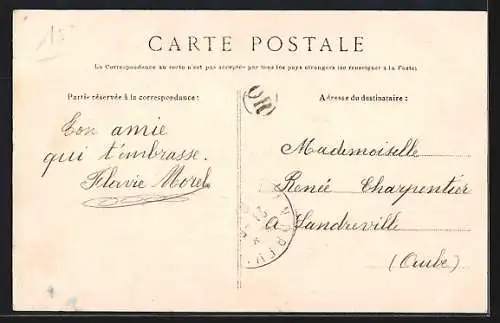 15
CARTE POSTALE
La Correspondance au recto n'est pas acceptée par tous les pays étrangers (se renseigner à la Poste)
Partie réservée à la correspondance :
Adresse du destinataire :
OR
Ton amie
qui t'embrasse.
Flavie Morel
Mademoiselle
Renée Charpentier
A Landreville
(Aube)